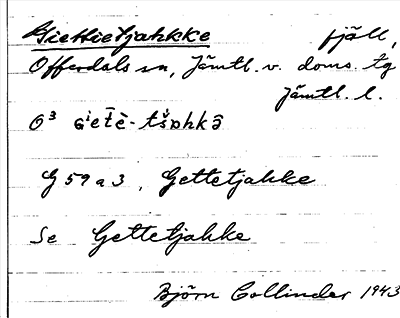 Giettietjahkke fjäll,
Offerdals sn, Jämtl. v. doms. tg
Jämtl. l.
O³
G 59 a 3, Gettetjahke
Se Gettetjahke
Björn Collinder 1943